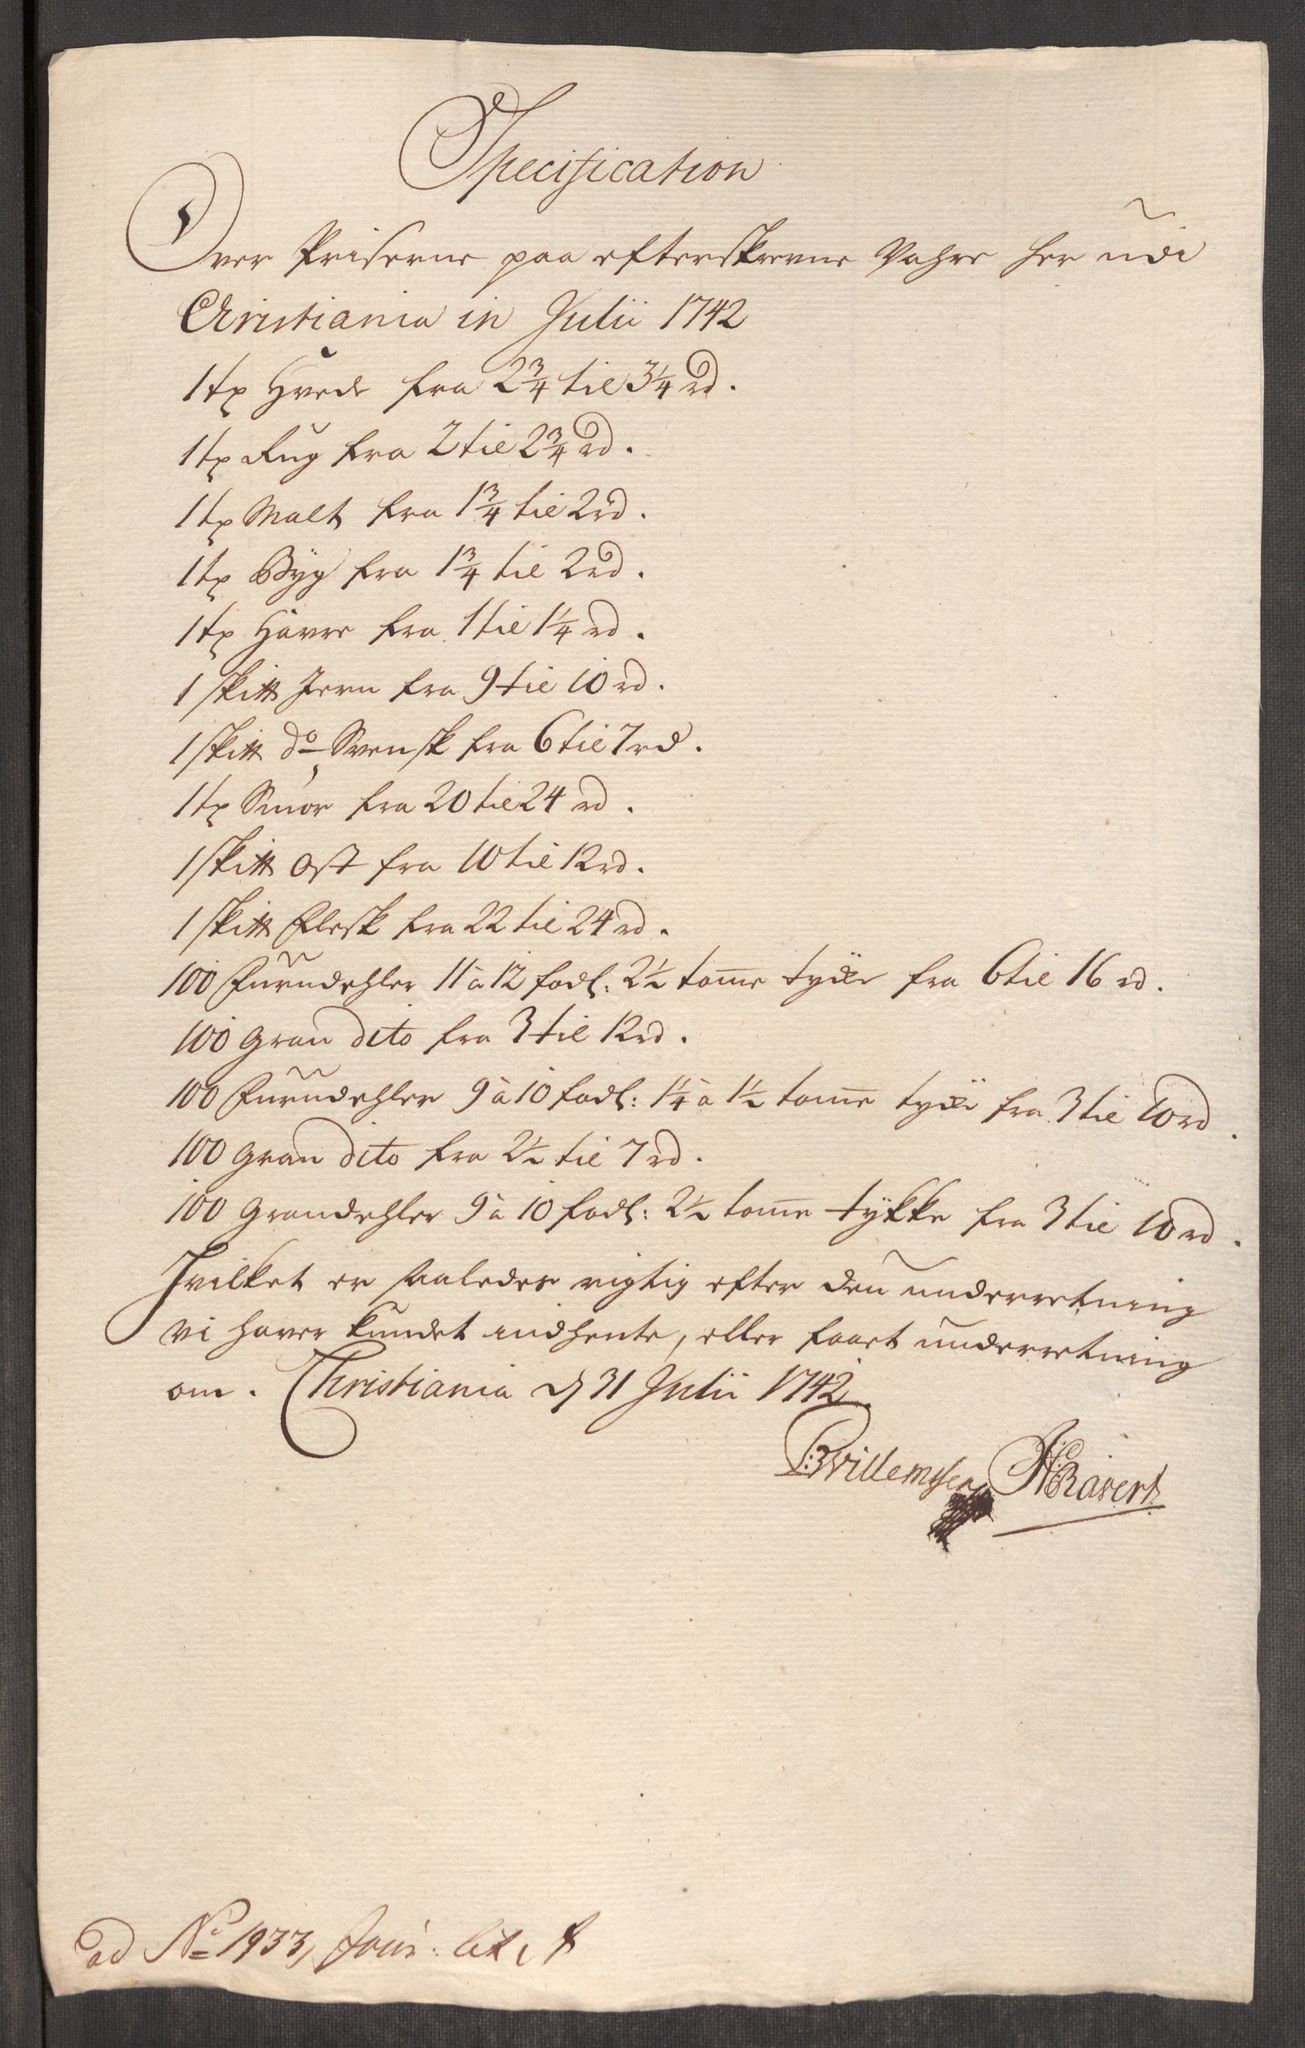 Specification
Over Priserne paa efterskrevne Vahre her udi
Christiania in Julii 1742
1 tp Hvede fra 2 3/4 til 3 1/4 rd.
1 tp Rug fra 2 til 2 3/4 rd.
1 tp Malt fra 1 3/4 til 2 rd.
1 tp Byg fra 1 3/4 til 2 rd.
1 tp Havre fra 1 til 1 1/4 rd.
1 skitt Jern fra 9 til 10 rd.
1 skitt do Svensk fra 6 til 7 rd.
1 tp Smør fra 20 til 24 rd.
1 skitt Ost fra 10 til 12 rd.
1 skitt Flesk fra 22 til 24 rd.
100 Furudehler 11 à 12 fods: 2 1/2 tome tycke fra 6 til 16 rd.
100 Gran dito fra 3 til 12 rd.
100 Furudehler 9 à 10 fods: 1 1/4 à 1 1/2 tome tycke fra 3 til 10 rd.
100 Gran dito fra 2 1/2 til 7 rd.
100 Grandehler 9 à 10 fods: 2 1/2 tome tykke fra 3 til 10 rd.
Hvilket er saaledes rigtig efter den underretning
vi haver kundet indhente, eller faaet underretning
om. Christiania d 31 Julii 1742.
Willemsen Ravert
ad No 1933, Jour: lit: A